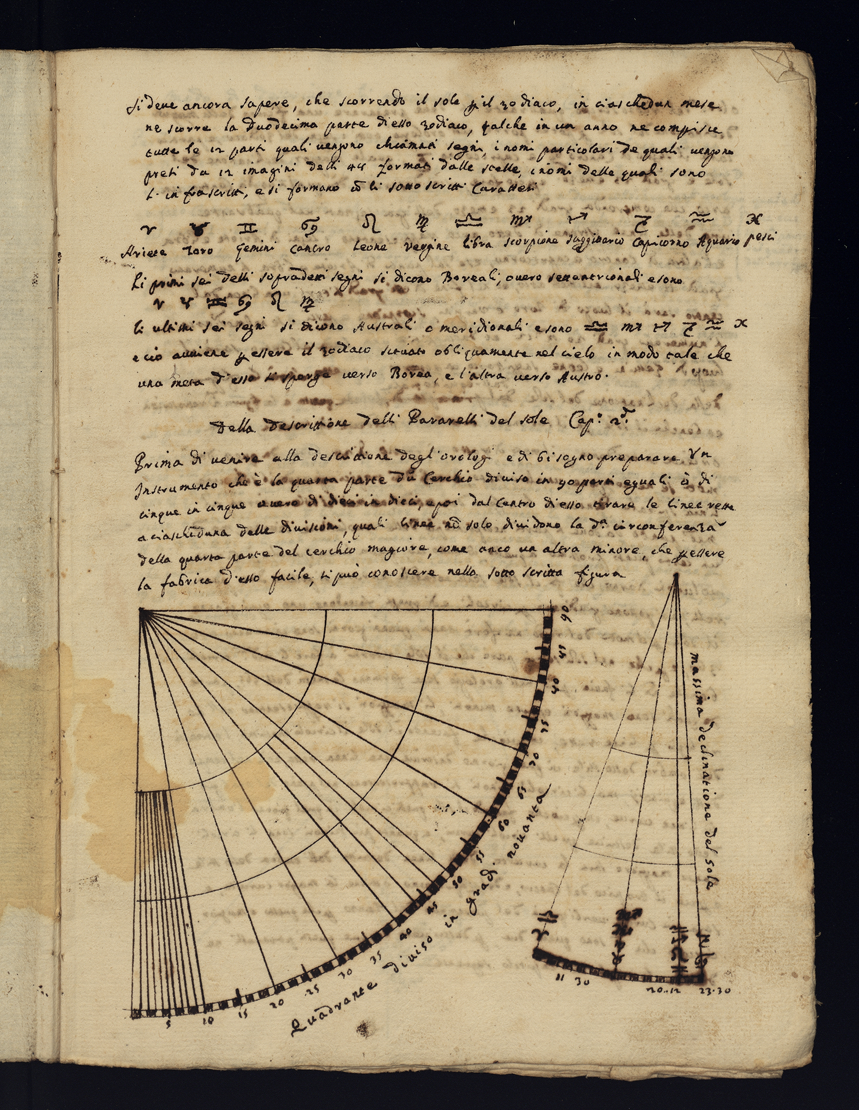 Si deve ancora sapere, che scorrendo il sole p il zodiaco, in ciaschedun mese
ne scorre la duodecima parte di esso zodiaco, talche in un anno ne compisce
tutte le 12 parti quali vengono chiamati segni, i nomi particolari de quali vengono
presi da 12 imagini delli 48 formati dalle stelle, i nomi delle quali sono
l'infrascritti, e si formano cō li sotto scritti Caratteri
♈ ♉ ♊ ♋ ♌ ♍ ♎ ♏ ♐ ♑ ♒ ♓
Ariete Toro Gemini Cancro Leone Vergine libra scorpione Saggitario Capicorno Aquario pesci
Li primi sei delli sopradetti segni si dicono Boreali, overo settentrionali e sono
♈ ♉ ♊ ♋ ♌ ♍
li ultimi sei segni si dicono Australi o meridionali e sono ♎ ♏ ♐ ♑ ♒ ♓
e cio aviene p essere il zodiaco situato obliquamente nel cielo in modo tale che
una metà d'esso si sparge verso Borea, e l'altra verso Austro.
Della descrittione delli Pararelli del sole Cap.º 2º
Prima di venire alla descrittione degli orologi e di bisogno preparare Un
Instrumento che è la quarta parte du Cerchio diviso in 90 parti eguali ò di
cinque in cinque overo di dieci in dieci, e poi dal Centro di esso tirare le linee rette
a ciascheduna delle divisioni, quali linee nō solo dividono la d.ª circonferenza
della quarta parte del cerchio magiore, come anco un altra minore, che p essere
la fabrica d'esso facile, si può conoscere nella sotto scritta figura
90
85
80
75
70
65
60
55
50
45
40
35
30
25
20
15
10
5
Quadrante diviso in gradi novanta
massima declinatione del sole
♈ ♎
11 30
20.12
23.30